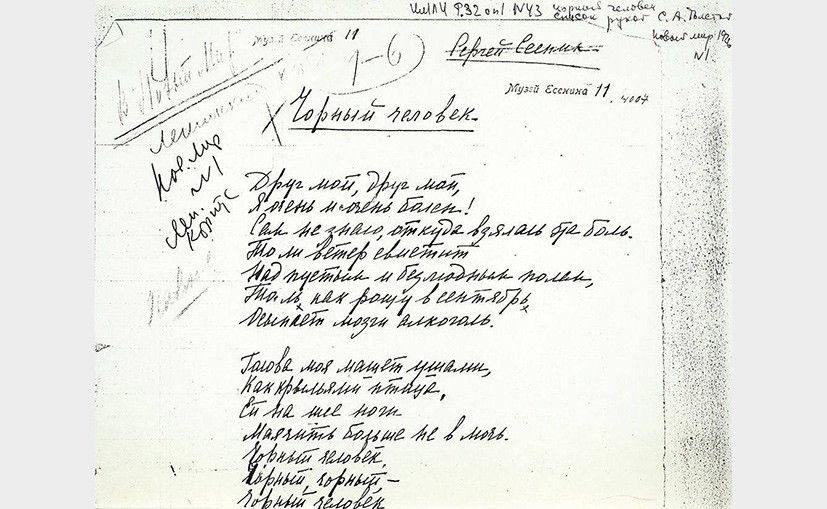 ИМЛИ Ф.32 оп1 N43 чорный человек
список рукой С. А. Толстой
Новый мир 1926
N1.
В "Новый Мир"
Музей Есенина 11
1-6
Сергей Есенин
Музей Есенина 11, 4007
Ленинский
Нов. Мир
N1
Лен.
корпус
Чорный человек.
Друг мой, друг мой,
Я очень и очень болен!
Сам не знаю, откуда взялась эта боль.
То ли ветер свистит
Над пустым и безлюдным полем,
То ль, как рощу в сентябрь,
Осыпает мозги алкоголь.
Голова моя машет ушами,
Как крыльями птица,
Ей на шее ноги
Маячить больше не в мочь.
Чорный человек,
Чорный, чорный, –
Чорный человек